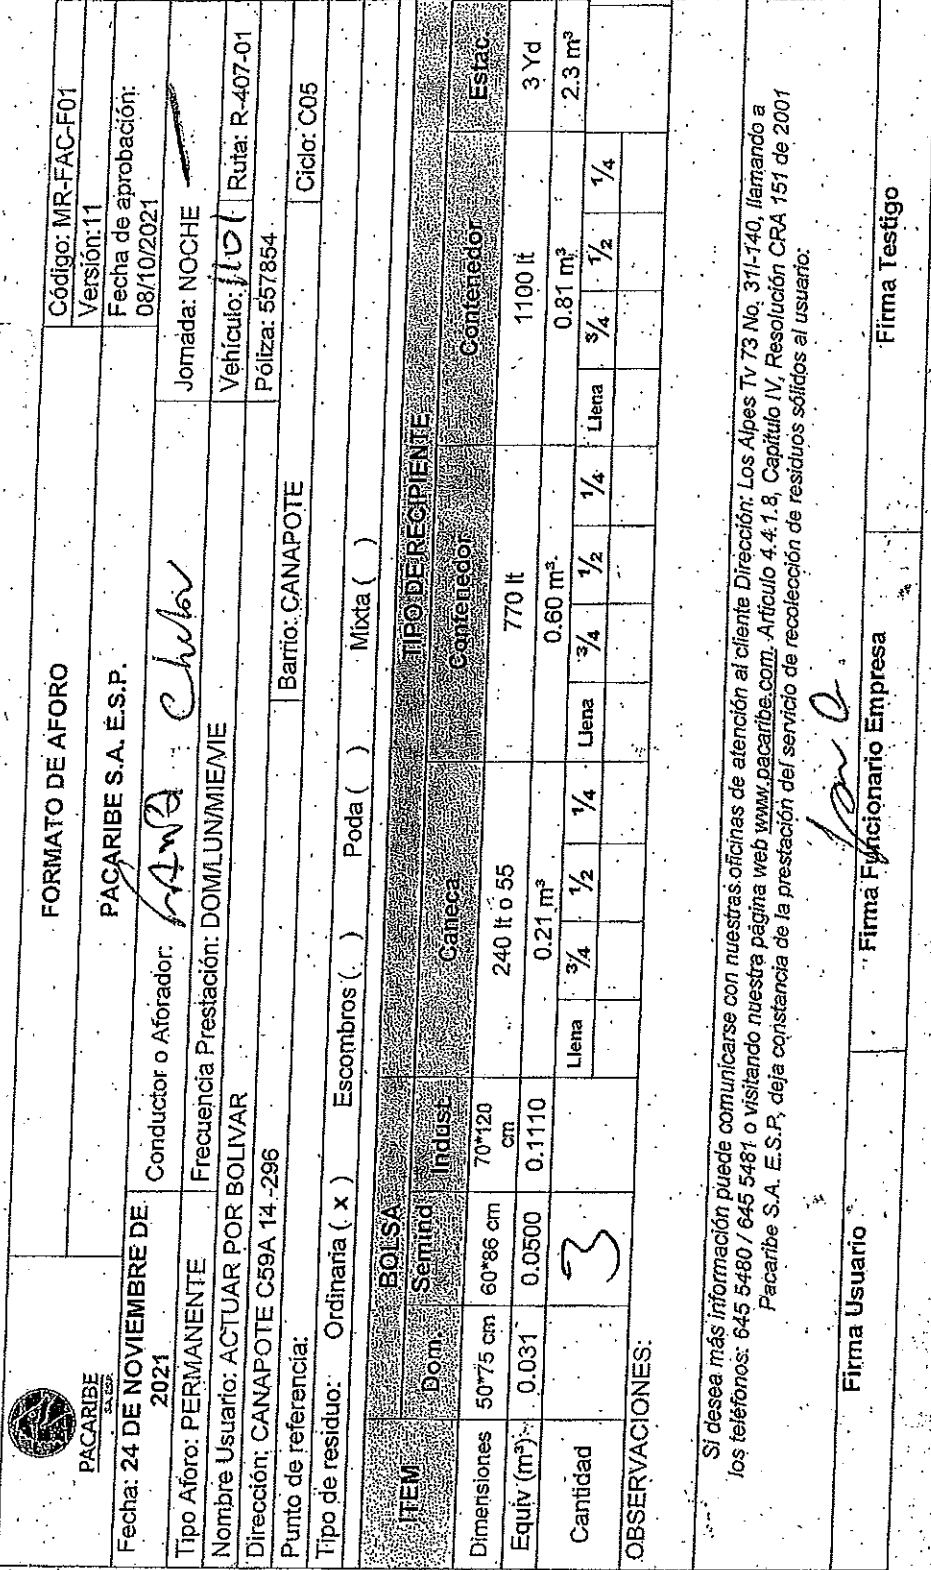 PACARIBE
S.A. ESP.
FORMATO DE AFORO
Código: MR-FAC-F01
Versión:11
PACARIBE S.A. E.S.P.
Fecha de aprobación:
08/10/2021
Fecha: 24 DE NOVIEMBRE DE
2021
Conductor o Aforador:
Jornada: NOCHE
Tipo Aforo: PERMANENTE
Frecuencia Prestación: DOM/LUN/MIE/VIE
Vehículo: 1101
Ruta: R-407-01
Nombre Usuario: ACTUAR POR BOLIVAR
Póliza: 557854
Dirección: CANAPOTE C59A 14.-296
Barrio: CANAPOTE
Ciclo: C05
Punto de referencia:
Tipo de residuo: Ordinaria ( x ) Escombros ( ) Poda ( ) Mixta ( )
ITEM
BOLSA
TIPO DE RECIPIENTE
Dom. Semind Indust. Caneca Contenedor Contenedor Estac.
Dimensiones 50*75 cm 60*86 cm 70*120 cm 240 lt o 55 770 lt 1100 lt 3 Yd
Equiv (m³) 0.031 0.0500 0.1110 0.21 m³ 0.60 m³ 0.81 m³ 2.3 m³
Cantidad 3 Llena 3/4 1/2 1/4 Llena 3/4 1/2 1/4 Llena 3/4 1/2 1/4
OBSERVACIONES:
Si desea más información puede comunicarse con nuestras oficinas de atención al cliente Dirección: Los Alpes Tv 73 No. 31I-140, llamando a
los teléfonos: 645 5480 / 645 5481 o visitando nuestra página web www.pacaribe.com. Artículo 4.4.1.8, Capítulo IV, Resolución CRA 151 de 2001
Pacaribe S.A. E.S.P, deja constancia de la prestación del servicio de recolección de residuos sólidos al usuario:
Firma Usuario
Firma Funcionario Empresa
Firma Testigo